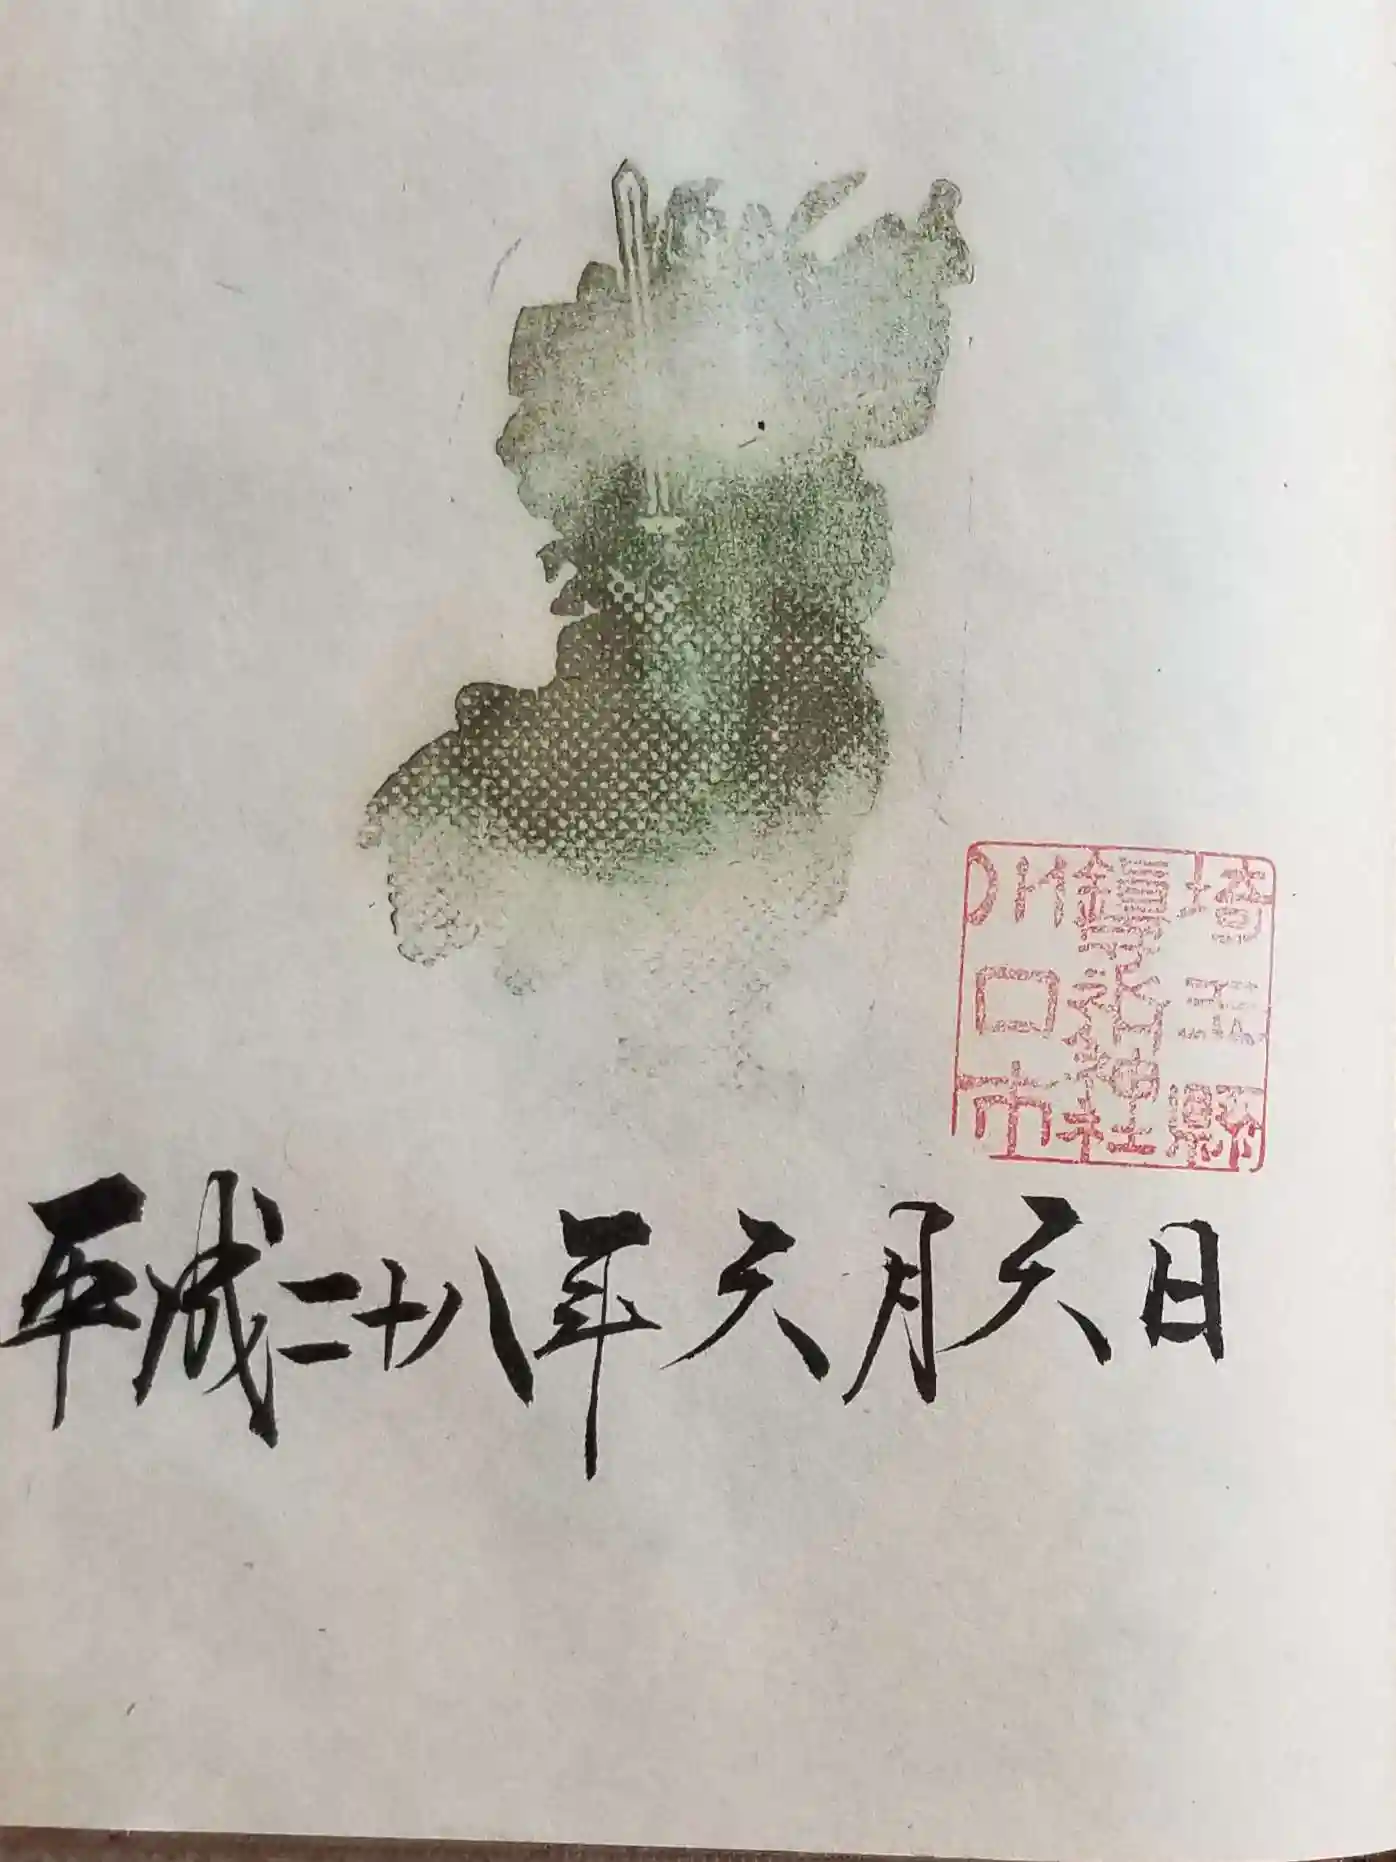 埼玉縣
川口市
平成二十八年六月六日